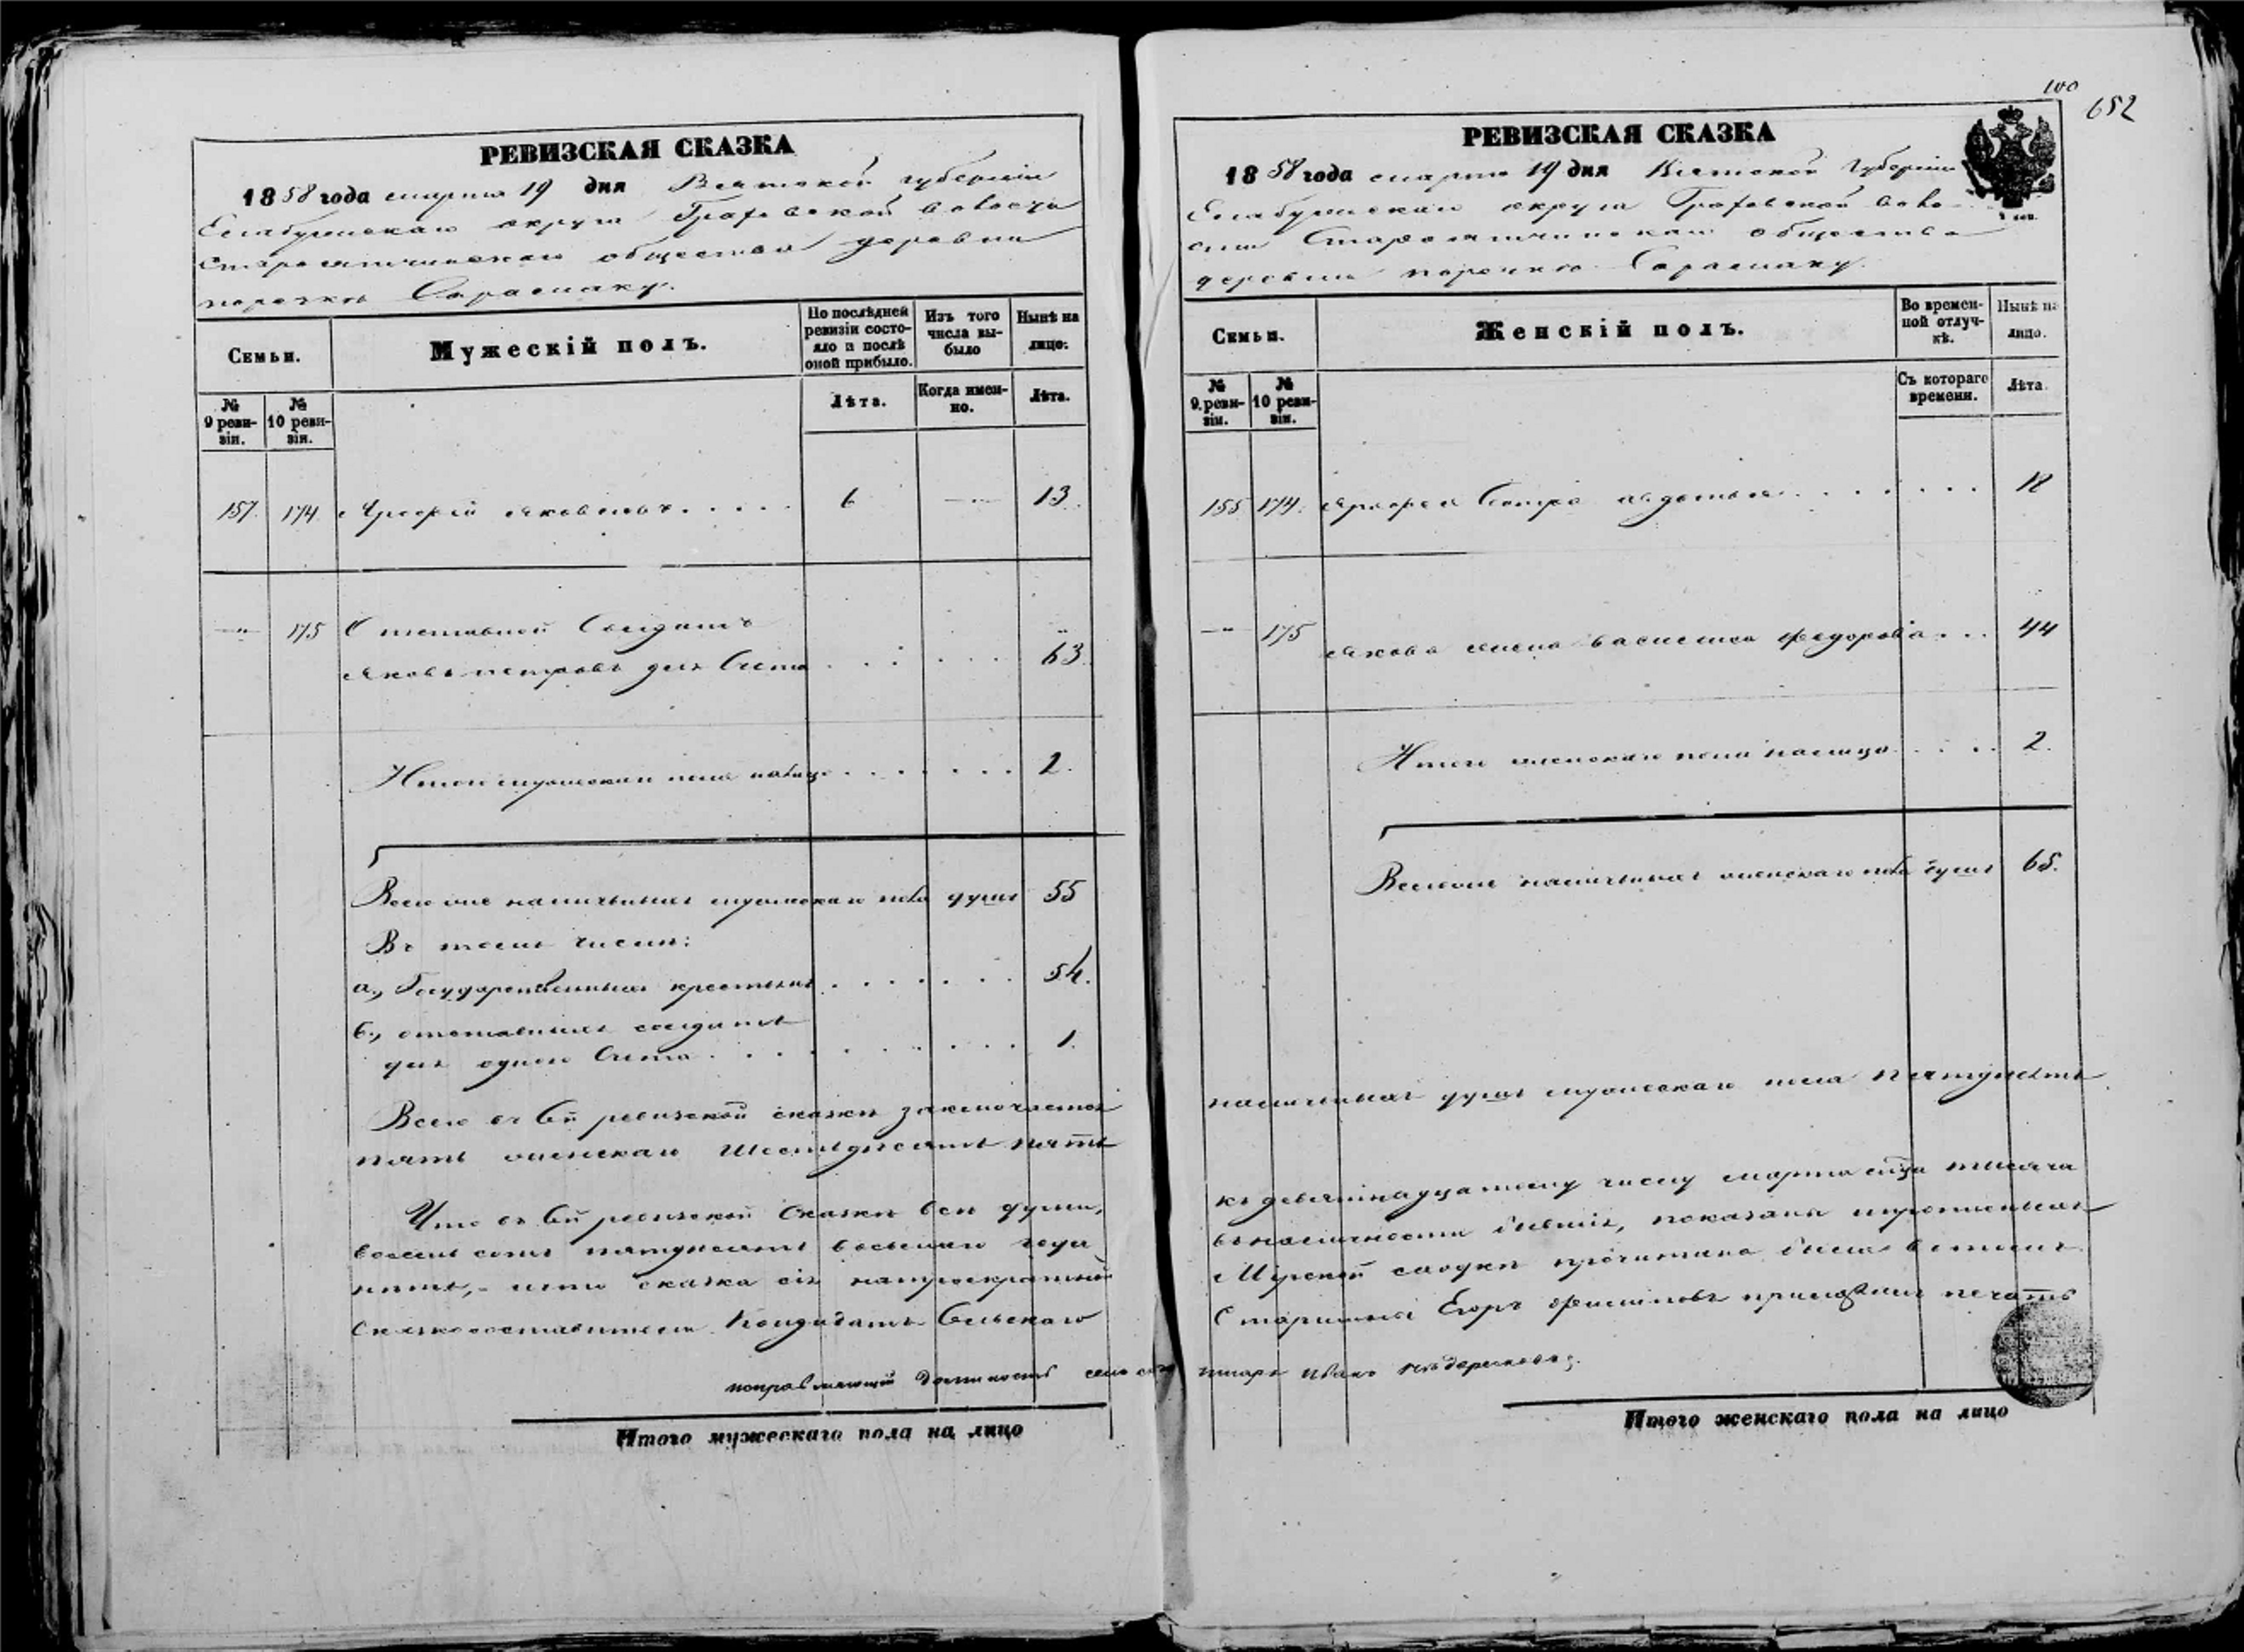 РЕВИЗСКАЯ СКАЗКА
1858 года марта 19 дня Вятской губернiи
Елабужскаго округа Граховской волости
Старо общества деревни
поречки
Семьи.
Мужескiй полъ.
По послѣдней ревизiи состояло и послѣ оной прибыло.
Изъ того числа выбыло
Нынѣ на лицо.
№ 9 ревизiи.
№ 10 ревизiи.
Лѣта.
Когда именно.
Лѣта.
157. 174 Яковлевъ . . . . . 6 —"— 13.
—"— 175 Отставной Солдатъ
Яковъ Петровъ для Счета . . . . . . 63.
Итого мужескаго пола налицо . . . . . . . 2.
Всего же наличныхъ мужескаго пола душъ 55
Въ томъ числѣ:
а., Государственныхъ крестьянъ . . . . . . . 54.
б., отставныхъ солдатъ
для одного Счета . . . . . . . . . . 1.
Всего въ сей ревизской сказкѣ заключается
пять женскаго шестьдесятъ пять
Что въ сей ревизской Сказкѣ всѣ души,
восемь сотъ пятьдесятъ восьмаго года
что сказка сiя
Сказкосоставители Кандидатъ Сельскаго
исправляющiй должность
Итого мужескаго пола на лицо
100
652
РЕВИЗСКАЯ СКАЗКА
1858 года марта 19 дня Вятской Губернiи
Елабужскаго округа Граховской воло-
сти общества
деревни поречки
Семьи.
Женскiй полъ.
Во временной отлучкѣ.
Нынѣ на лицо.
№ 9 ревизiи.
№ 10 ревизiи.
Съ котораго времени.
Лѣта.
155 174. Сестра Авдотья . . . . . . . 18
—"— 175 Якова жена Василиса Федорова . . . 44
Итого женскаго пола налицо . . . . 2.
Всего же наличныхъ женскаго пола душъ 65.
наличныхъ душъ мужескаго пола пятьдесятъ
къ девятнадцатому числу марта мѣца тысяча
въ наличности бывшiя, показаны
Мiрской сходкѣ прочитана была
Старшины Егоръ Филиповъ приложилъ печать
писарь Иванъ
Итого женскаго пола на лицо